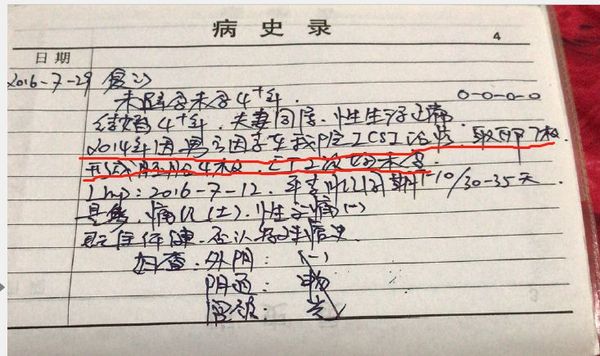 病史录
4
日期
2016-7-29 复诊
未避孕未孕4⁺年 0-0-0-0
结婚4⁺年，夫妻同居，性生活正常
2014年因男方因子在我院ICSI治疗，取卵7枚
形成胚胎4枚，ET2次均未孕
Lmp：2016-7-12，平素月经周期7-10/30-35天
量中，痛经(±)，性交痛(-)
既往体健，否认
妇查：外阴：(-)
阴道：畅
宫颈：光